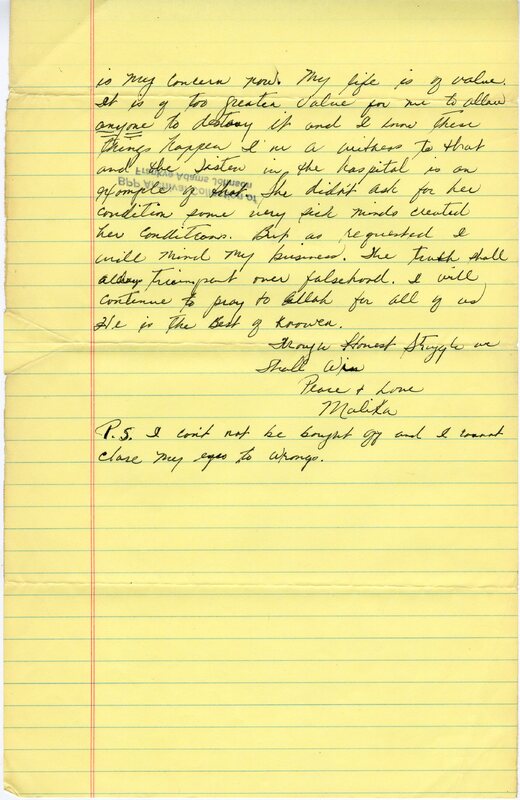 is my concern now. My life is of value.
It is of too greater value for me to allow
anyone to destory it and I know these
things happen I'm a witness to that
and the sister in the hospital is an
example of that. She didn't ask for her
condition some very sick minds created
her conditions. But as requested I
will mind my business. The truth shall
always triumpant over falsehood. I will
continue to pray to Allah for all of us
He is the Best of Knower.
Trough Honest Struggle we
Shall Win
Peace + Love
Malika
P.S. I can't not be bought off and I cannot
close my eyes to wrongs.
BPP Alumni Collection of
Frankye Adams Johnson